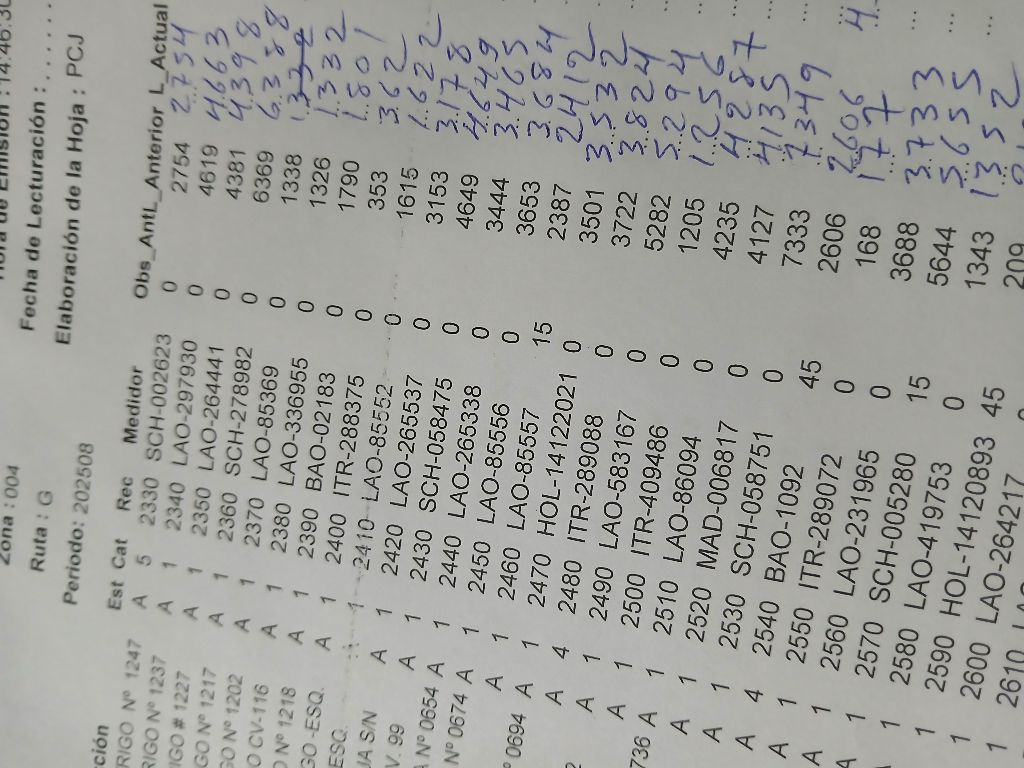 Hora de Emisión : 14:46:30
Zona : 004 Fecha de Lecturación : . . . . . .
Ruta : G Elaboración de la Hoja : PCJ
Periodo: 202508
ción Est Cat Rec Medidor Obs_Ant L_Anterior L_Actual
RIGO Nº 1247 A 5 2330 SCH-002623 0 2754 2754
RIGO Nº 1237 A 1 2340 LAO-297930 0 4619 4663
IGO # 1227 A 1 2350 LAO-264441 0 4381 4398
GO Nº 1217 A 1 2360 SCH-278982 0 6369 6388
GO Nº 1202 A 1 2370 LAO-85369 0 1338
O CV-116 A 1 2380 LAO-336955 0 1326 1332
Nº 1218 A 1 2390 BAO-02183 0 1790 1801
GO -ESQ. A 1 2400 ITR-288375 0 353 362
ESQ. 1 2410 LAO-85552 0 1615 1622
JA S/N A 1 2420 LAO-265537 0 3153 3178
V. 99 A 1 2430 SCH-058475 0 4649 4649
A Nº 0654 A 1 2440 LAO-265338 0 3444 3465
Nº 0674 A 1 2450 LAO-85556 0 3653 3684
A 1 2460 LAO-85557 15 2387 2412
º 0694 A 1 2470 HOL-14122021 0 3501 3532
A 4 2480 ITR-289088 0 3722 3824
2 A 1 2490 LAO-583167 0 5282 5294
A 1 2500 ITR-409486 0 1205 1256
736 A 1 2510 LAO-86094 0 4235 4287
A 1 2520 MAD-006817 0 4127 4135
A 1 2530 SCH-058751 0 7333 7349
A 4 2540 BAO-1092 45 2606 2606
A 1 2550 ITR-289072 0 168 177
A 1 2560 LAO-231965 0 3688 3733
1 2570 SCH-005280 15 5644 5655
1 2580 LAO-419753 0 1343 1352
1 2590 HOL-14120893 45 209
1 2600 LAO-264217
1 2610